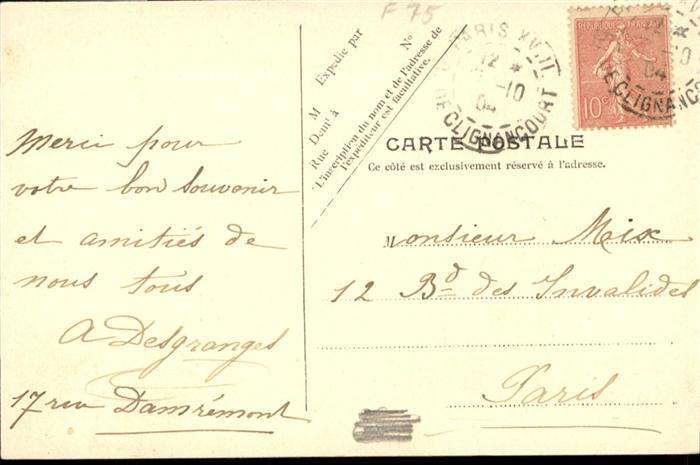 F 75
Merci pour
votre bon souvenir
et amitiés de
nous tous
A Desgranges
17 rue Damrémont
Expédié par
M
Demt à
Rue
No
L'inscription du nom et de l'adresse de
l'expéditeur est facultative.
PARIS XVIII
12 *
-10
04
R. DE CLIGNANCOURT
REPUBLIQUE FRANÇAISE
10c
10
04
DE CLIGNANCOURT
CARTE POSTALE
Ce côté est exclusivement réservé à l'adresse.
Monsieur Mix
12 Bd des Invalides
Paris